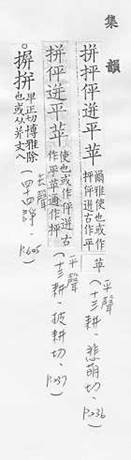 集韻
拼抨迸平苹 爾雅使也或作
抨迸古作平
苹 平聲
(十三耕、悲萌切、
P.236
拼伻迸平苹 使也或作伻迸古
作平苹通作抨
平聲
(十三耕、披耕切、
P.237
○摒拼 卑正切博雅除
也或从并文八
去聲
(四四諍、
P.605